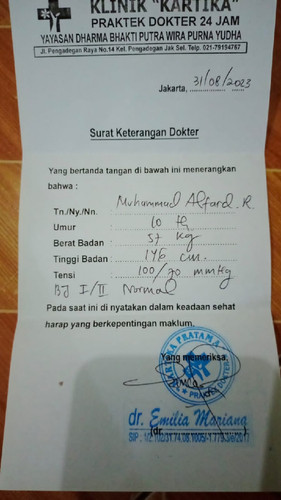 KLINIK "KARTIKA"
PRAKTEK DOKTER 24 JAM
YAYASAN DHARMA BHAKTI PUTRA WIRA PURNA YUDHA
Jl. Pengadegan Raya No.14 Kel. Pengadegan Jak Sel. Telp. 021-79194767
Jakarta, 31/08/2023
Surat Keterangan Dokter
Yang bertanda tangan di bawah ini menerangkan
bahwa :
Tn./Ny./Nn. : Muhammad Alfard. R.
Umur : 10 th
Berat Badan : 57 kg
Tinggi Badan : 146 cm.
Tensi : 100/70 mmHg
BJ I/II Normal
Pada saat ini di nyatakan dalam keadaan sehat
harap yang berkepentingan maklum.
Yang memeriksa
KARTIKA PRATAMA
PRAKTEK DOKTER
dr. Emilia Mariana
(dr.